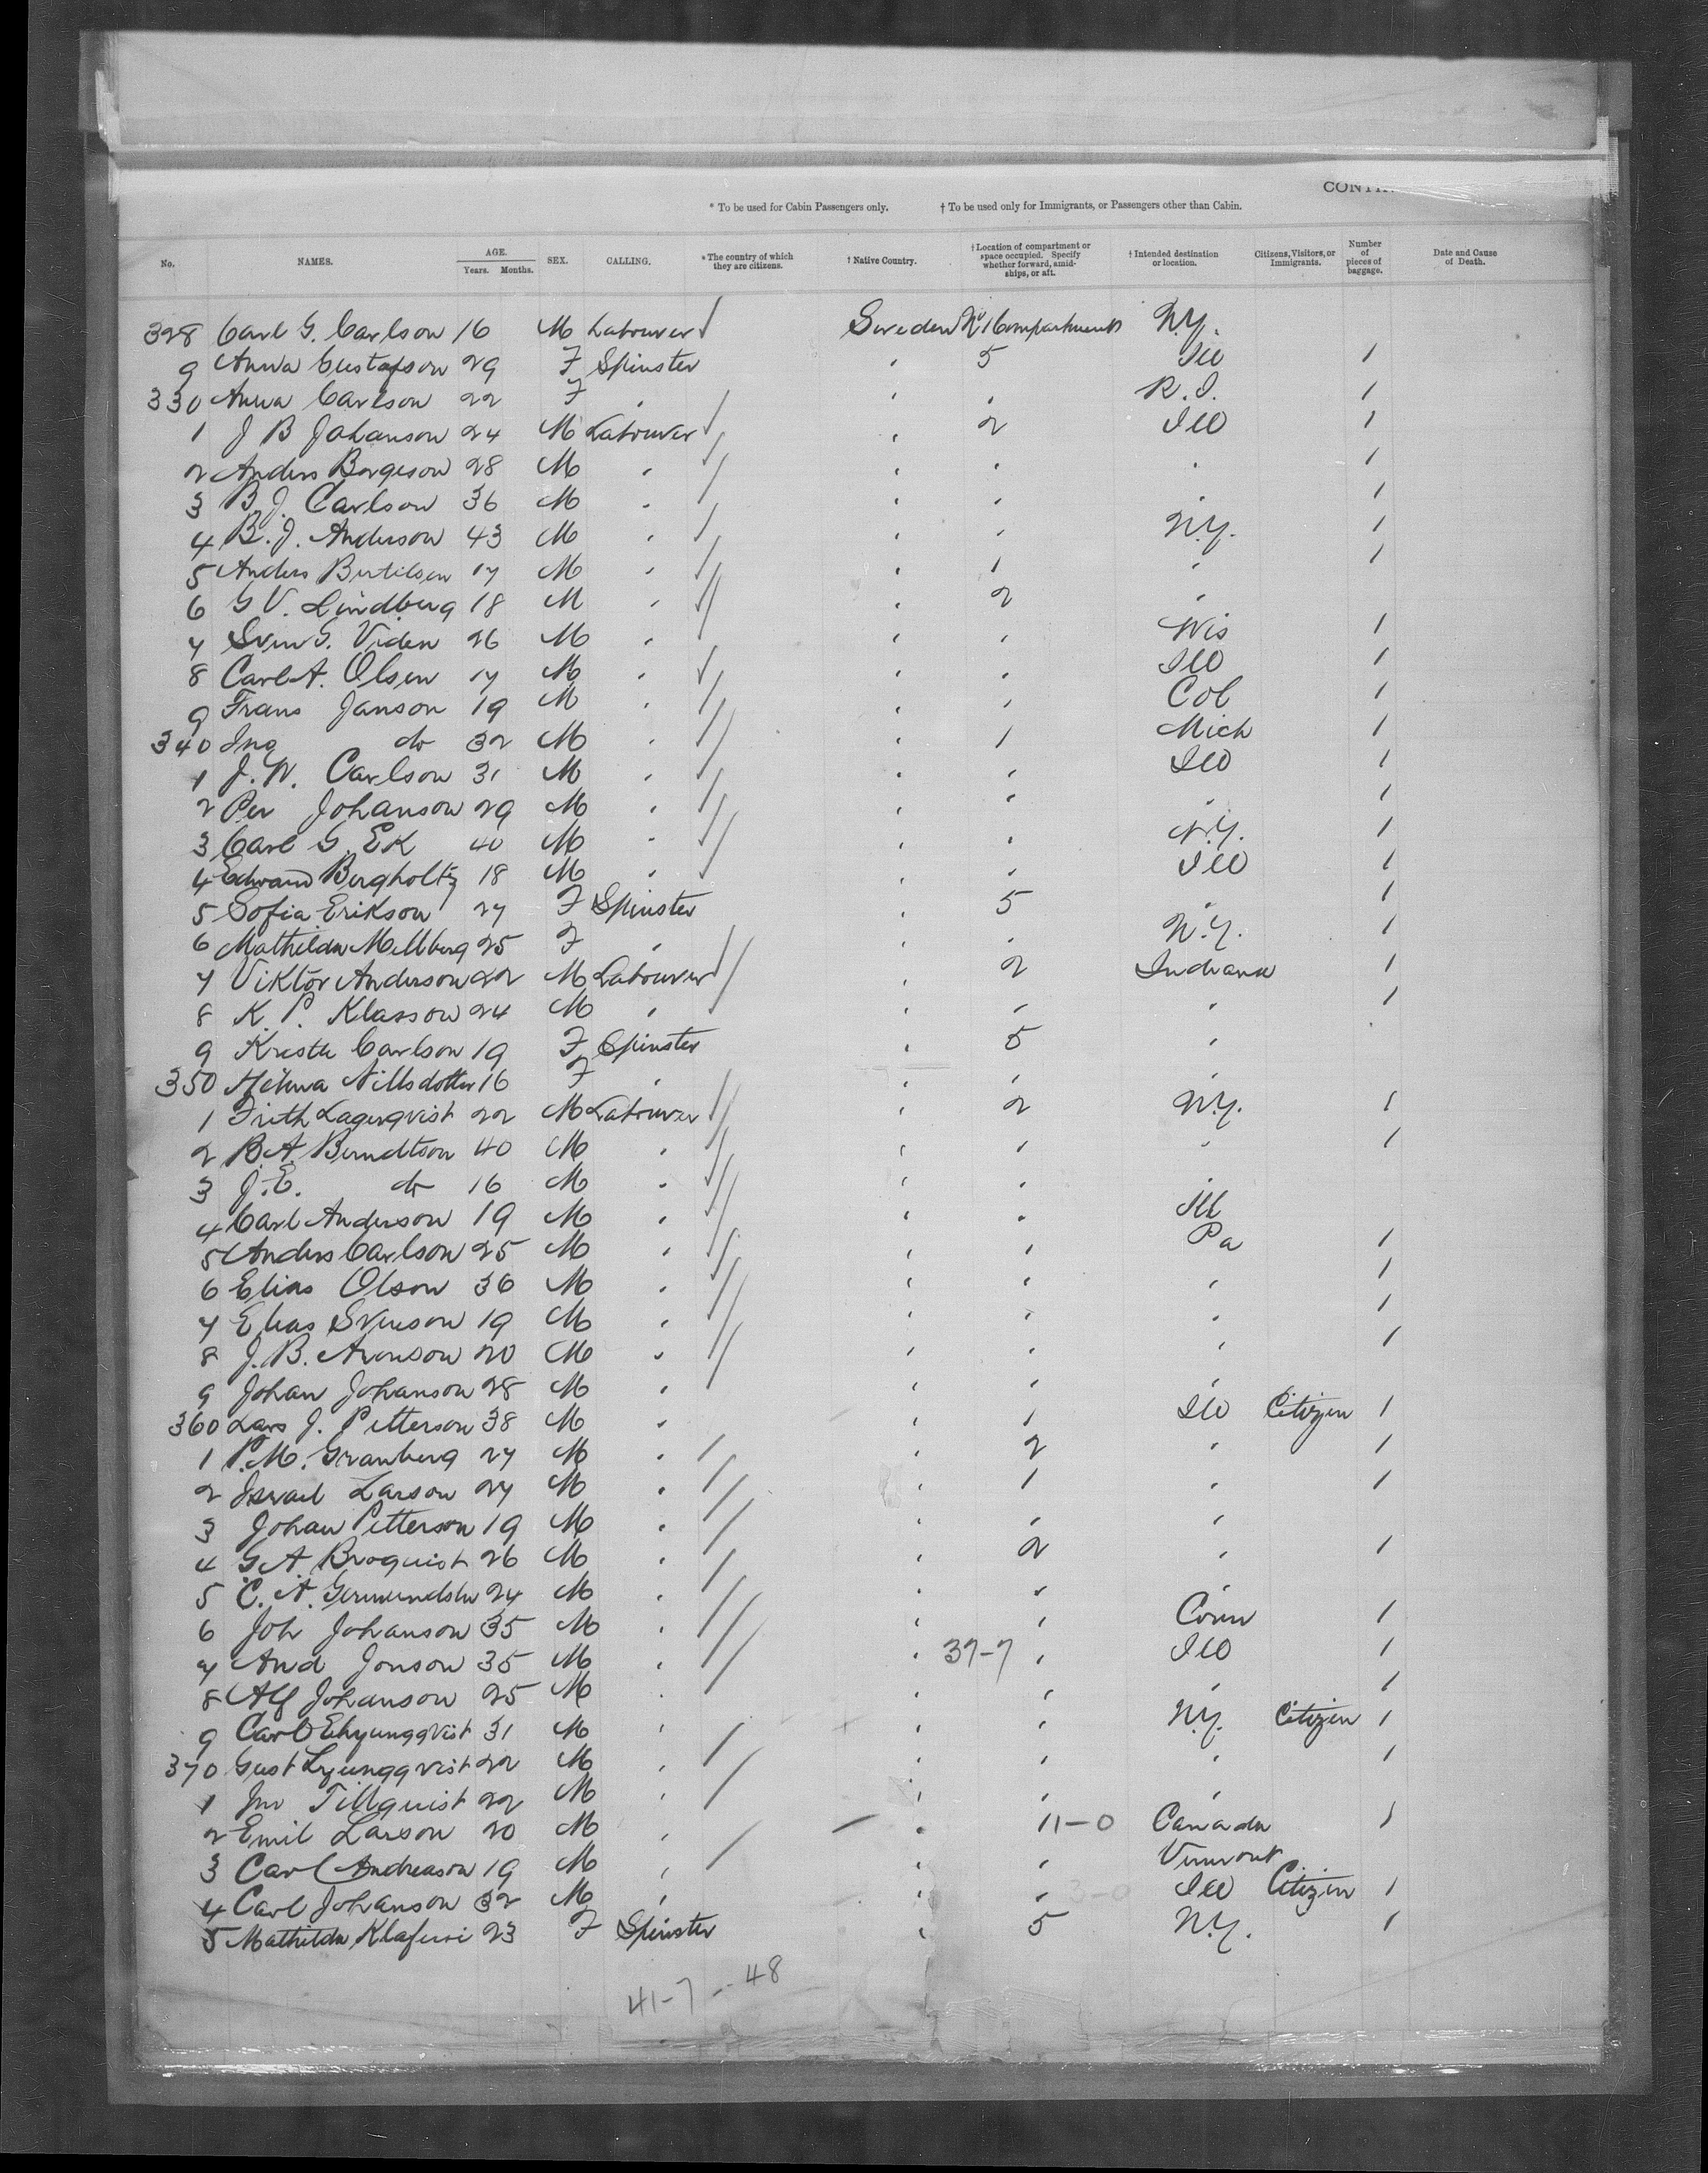 CONTIN
* To be used for Cabin Passengers only. † To be used only for Immigrants, or Passengers other than Cabin.
No. NAMES. AGE. Years. Months. SEX. CALLING. * The country of which they are citizens. † Native Country. † Location of compartment or space occupied. Specify whether forward, amidships, or aft. † Intended destination or location. Citizens, Visitors, or Immigrants. Number of pieces of baggage. Date and Cause of Death.
328 Carl G. Carlson 16 M Labourer Sweden No 1 Compartment N.Y.
9 Anna Gustafson 29 F Spinster " 5 Ill 1
330 Anna Carlson 22 F " " " R.I. 1
1 J B Johanson 24 M Labourer " 2 Ill 1
2 Anders Borgeson 28 M " " " " 1
3 B. J. Carlson 36 M " " " " 1
4 B. J. Anderson 43 M " " " N.Y. 1
5 Anders Bertilsen 17 M " " 1 " 1
6 G V. Lindberg 18 M " " 2 "
7 Sven G. Viden 26 M " " " Wis 1
8 Carl A. Olsen 17 M " " " Ill 1
9 Frans Janson 19 M " " " Col 1
340 Jno do 32 M " " 1 Mich 1
1 J. W. Carlson 31 M " " " Ill 1
2 Per Johanson 29 M " " " " 1
3 Carl G. Ek 40 M " " " N.Y. 1
4 Edward Bergholtz 18 M " " " Ill 1
5 Sofia Erikson 27 F Spinster " 5 " 1
6 Mathilda Mellberg 25 F " " " N.Y. 1
7 Viktor Anderson 22 M Labourer " 2 Indiana 1
8 K. P. Klasson 24 M " " " " 1
9 Carlson 19 F Spinster " 5 "
350 Nillsdotter 16 F " " " "
1 Frith Lagerqvist 22 M Labourer " 2 N.Y. 1
2 B A. Berndtson 40 M " " " " 1
3 J. E. do 16 M " " " "
4 Carl Anderson 19 M " " " Ill
5 Anders Carlson 25 M " " " Pa 1
6 Elias Olson 36 M " " " " 1
7 Elias Svenson 19 M " " " " 1
8 J. B. Aronson 20 M " " " " 1
9 Johan Johanson 28 M " " " "
360 Lars J. Petterson 38 M " " 1 Ill Citizen 1
1 P. M. Granberg 27 M " " 2 " 1
2 Israel Larson 27 M " " 1 " 1
3 Johan Petterson 19 M " " " "
4 G A. Broquist 26 M " " 2 " 1
5 C. A. 24 M " " " "
6 Joh Johanson 35 M " " " Conn 1
7 And Jonson 35 M " " 37-7 " Ill 1
8 Alf Johanson 25 M " " " " 1
9 Carl 31 M " " " N.Y. Citizen 1
370 Gust Lyungqvist 22 M " " " " 1
1 Jno Tillquist 22 M " " " "
2 Emil Larson 20 M " " 11-0 Canada 1
3 Carl Andreason 19 M " " " Vermont
4 Carl Johanson 32 M " " " 3-0 Ill Citizen 1
5 Mathilda 23 F Spinster " 5 N.Y. 1
41-7--48